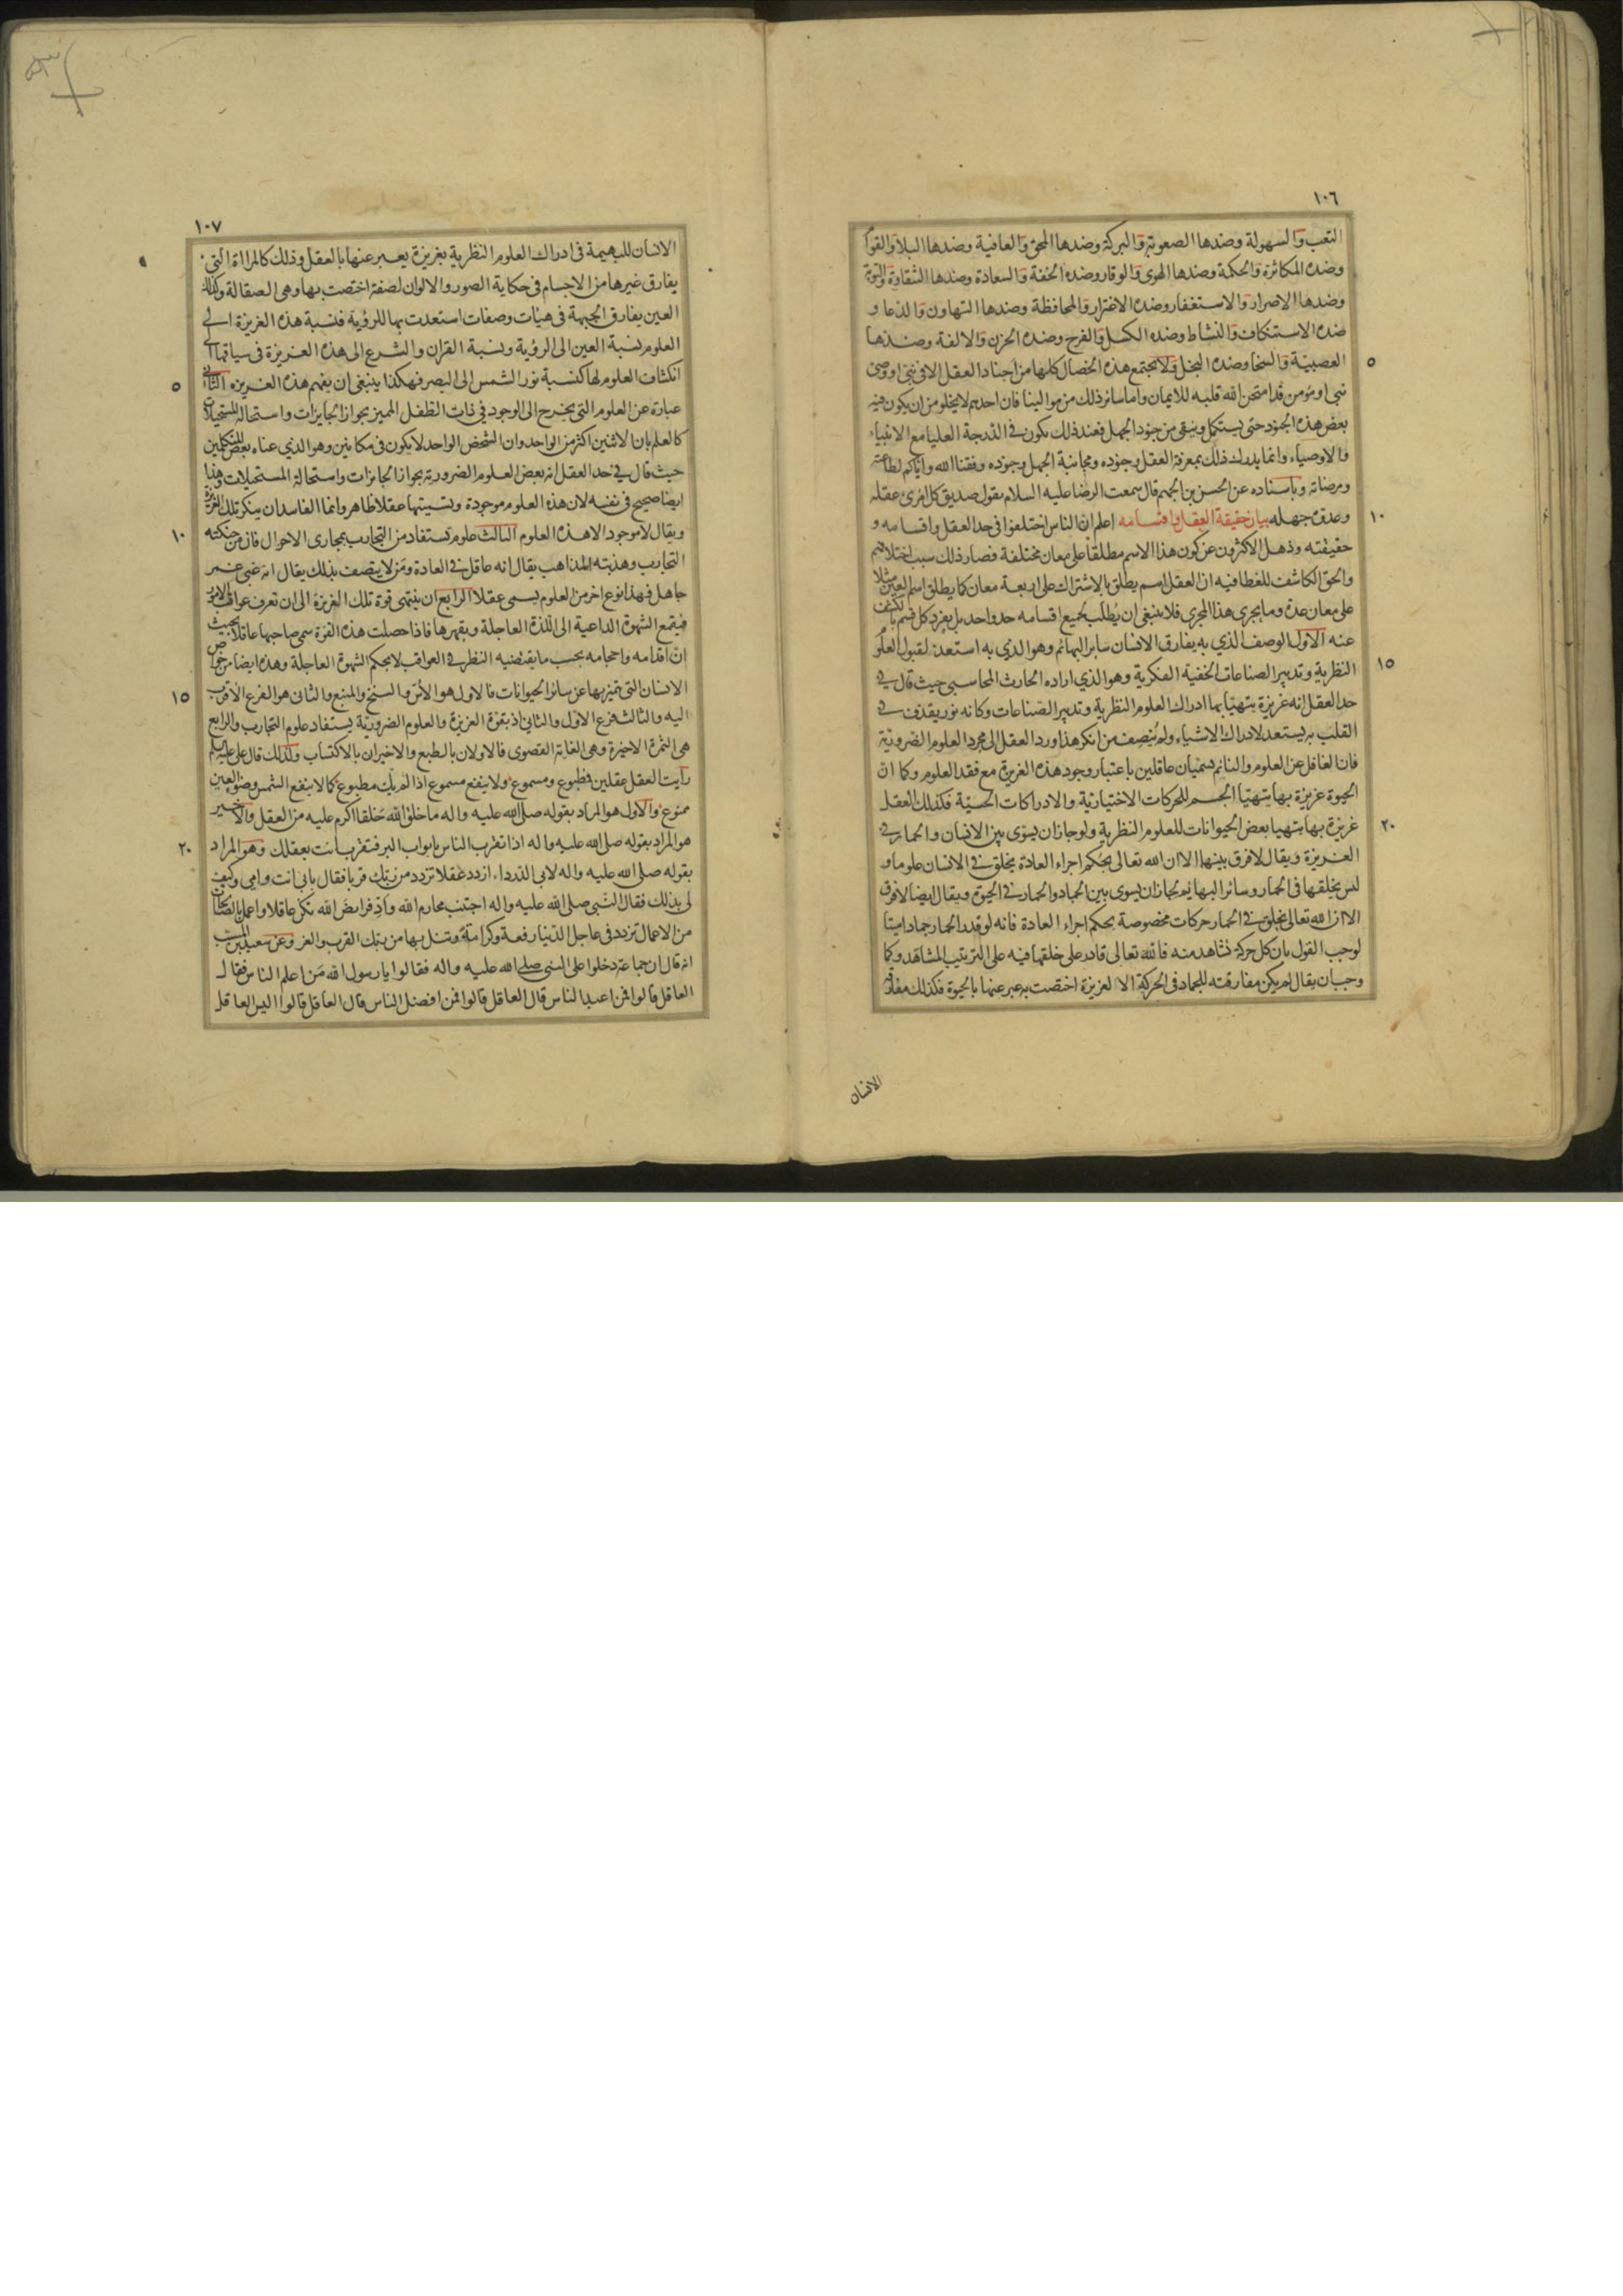 ١٠٦
التعب والسهولة وضدها الصعوبة والبركة وضدها المحق والعافية وضدها البلاء والقوام
وضده المكاثرة والحكمة وضدها الهوى والوقار وضده الخفة والسعادة وضدها الشقاوة والتوبة
وضدها الاصرار والاستغفار وضده الاغترار والمحافظة وضدها التهاون والدعا و
ضده الاستنكاف والنشاط وضده الكسل والفرح وضده الحزن والالفة وضدها
العصبية والسخا وضده البخل ولا تجتمع هذه الخصال كلها من اجناد العقل الا في نبي او وصي
٥
نبي او مؤمن قد امتحن الله قلبه للايمان واما سائر ذلك من موالينا فان احدهم لا يخلو من ان يكون فيه
بعض هذه الجنود حتى يستكمل وينقى من جنود الجهل فعند ذلك يكون في الدرجة العليا مع الانبياء
والاوصياء وانما يدرك ذلك بمعرفة العقل وجنوده ومجانبة الجهل وجنوده وفقنا الله واياكم لطاعته
ومرضاته وباسناده عن الحسن بن الجهم قال سمعت الرضا عليه السلام يقول صديق كل امرئ عقله
وعدوه جهله بيان حقيقة العقل واقسامه اعلم ان الناس اختلفوا في حد العقل واقسامه و
١٠
حقيقته وذهل الاكثرون عن كون هذا الاسم مطلقا على معان مختلفة فصار ذلك سبب اختلافهم
والحق الكاشف للغطا فيه ان العقل اسم يطلق بالاشتراك على اربعة معان كما يطلق اسم العين مثلا
على معان عدة وما يجري هذا المجري فلا ينبغي ان يطلب لجميع اقسامه حد واحد بل يفرد كل قسم بالكشف
عنه الاول الوصف الذي به يفارق الانسان ساير البهائم وهو الذي به استعد لقبول العلوم
النظرية وتدبير الصناعات الخفية الفكرية وهو الذي اراده الحارث المحاسبي حيث قال في
١٥
حد العقل انه غريزة يتهيأ بها ادراك العلوم النظرية وتدبير الصناعات وكانه نور يقذف في
القلب به يستعد لادراك الاشياء ولم ينصف من انكر هذا ورد العقل الى مجرد العلوم الضرورية
فان الغافل عن العلوم والنائم يسميان عاقلين باعتبار وجود هذه الغريزة مع فقد العلوم وكما ان
الحيوة غريزة بها يتهيا الجسم للحركات الاختيارية والادراكات الحسية فكذلك العقل
غريزة بها يتهيا بعض الحيوانات للعلوم النظرية ولو جاز ان يسوى بين الانسان والحمار في
٢٠
الغريزة ويقال لا فرق بينهما الا ان الله تعالى بحكم اجراء العادة يخلق في الانسان علوما و
ليس يخلقها في الحمار وسائر البهايم لجاز ان يسوى بين الجماد والحمار في الحيوة ويقال ايضا لا فرق
الا ان الله تعالى يخلق في الحمار حركات مخصوصة بحكم اجراء العادة فانه لو قدر الحمار جمادا ميتا
لوجب القول بان كل حركة تشاهد منه فالله تعالى قادر على خلقها فيه على الترتيب المشاهد وكما
وجب ان يقال لم يكن مفارقته للجماد في الحركة الا لغريزة اختصت به عبر عنها بالحيوة فكذلك مفارقة
الانسان
١٠٧
الانسان للبهيمة في ادراك العلوم النظرية بغريزة يعبر عنها بالعقل وذلك كالمراة التي
يفارق غيرها من الاجسام في حكاية الصور والالوان لصفة اختصت بها وهي الصقالة وكذلك
العين يفارق الجبهة في هيئات وصفات استعدت بها للرؤية فنسبة هذه الغريزة الى
العلوم نسبة العين الى الرؤية ونسبة القران والشرع الى هذه الغريزة في سياقتها الى
انكشاف العلوم لها كنسبة نور الشمس الى البصر فهكذا ينبغي ان يفهم هذه الغريزه الثاني
٥
عبارة عن العلوم التي يخرج الى الوجود في ذات الطفل المميز بجواز الجايزات واستحالة المستحيلات
كالعلم بان الاثنين اكثر من الواحد وان الشخص الواحد لا يكون في مكانين وهو الذي عناه بعض المتكلمين
حيث قال في حد العقل انه بعض العلوم الضرورية بجواز الجائزات واستحالة المستحيلات وهذا
ايضا صحيح في نفسه لان هذه العلوم موجودة وتسميتها عقلا ظاهر وانما الفاسد ان ينكر تلك الغريزة
ويقال لا موجود الا هذه العلوم الثالث علوم تستفاد من التجارب بمجاري الاحوال فان من حنكته
١٠
التجارب وهذبته المذاهب يقال انه عاقل في العادة ومن لا يتصف بذلك يقال انه غبي غمر
جاهل فهذا نوع اخر من العلوم يسمى عقلا الرابع ان ينتهى قوة تلك الغريزة الى ان تعرف عواقب الامور
فيقمع الشهوة الداعية الى اللذة العاجلة ويقهرها فاذا حصلت هذه القوة سمي صاحبها عاقلا بحيث
ان اقدامه واحجامه بحسب ما يقتضيه النظر في العواقب لا بحكم الشهوة العاجلة وهذه ايضا من خواص
الانسان التي يتميز بها عن سائر الحيوانات فالاول هو الاس والسنخ والمنبع والثاني هو الفرع الاقرب
١٥
اليه والثالث فرع الاول والثاني اذ بقوة الغريزة والعلوم الضرورية يستفاد علوم التجارب والرابع
هي الثمرة الاخيرة وهي الغاية القصوى فالاولان بالطبع والاخيران بالاكتساب ولذلك قال علي عليه السلم
رأيت العقل عقلين فمطبوع ومسموع ولا ينفع مسموع اذا لم يك مطبوع كما لا ينفع الشمس وضوء العين
ممنوع والاول هو المراد بقوله صلى الله عليه واله ما خلق الله خلقا اكرم عليه من العقل والاخير
هو المراد بقوله صلى الله عليه واله اذا تقرب الناس بابواب البر فتقرب انت بعقلك وهو المراد
٢٠
بقوله صلى الله عليه واله لابي الدرداء ازدد عقلا تزدد من ربك قربا فقال بابي انت وامي وكيف
لي بذلك فقال النبي صلى الله عليه واله اجتنب محارم الله واد فرايض الله تكن عاقلا واعمل بالصالحات
من الاعمال تزدد في عاجل الدنيا رفعة وكرامة وتنل بها من ربك القرب والعز وعن سعيد بن المسيب
انه قال ان جماعة دخلوا على النبي صلى الله عليه واله فقالوا يا رسول الله من اعلم الناس فقال
العاقل قالوا فمن اعبد الناس قال العاقل قالوا فمن افضل الناس قال العاقل قالوا اليس العاقل